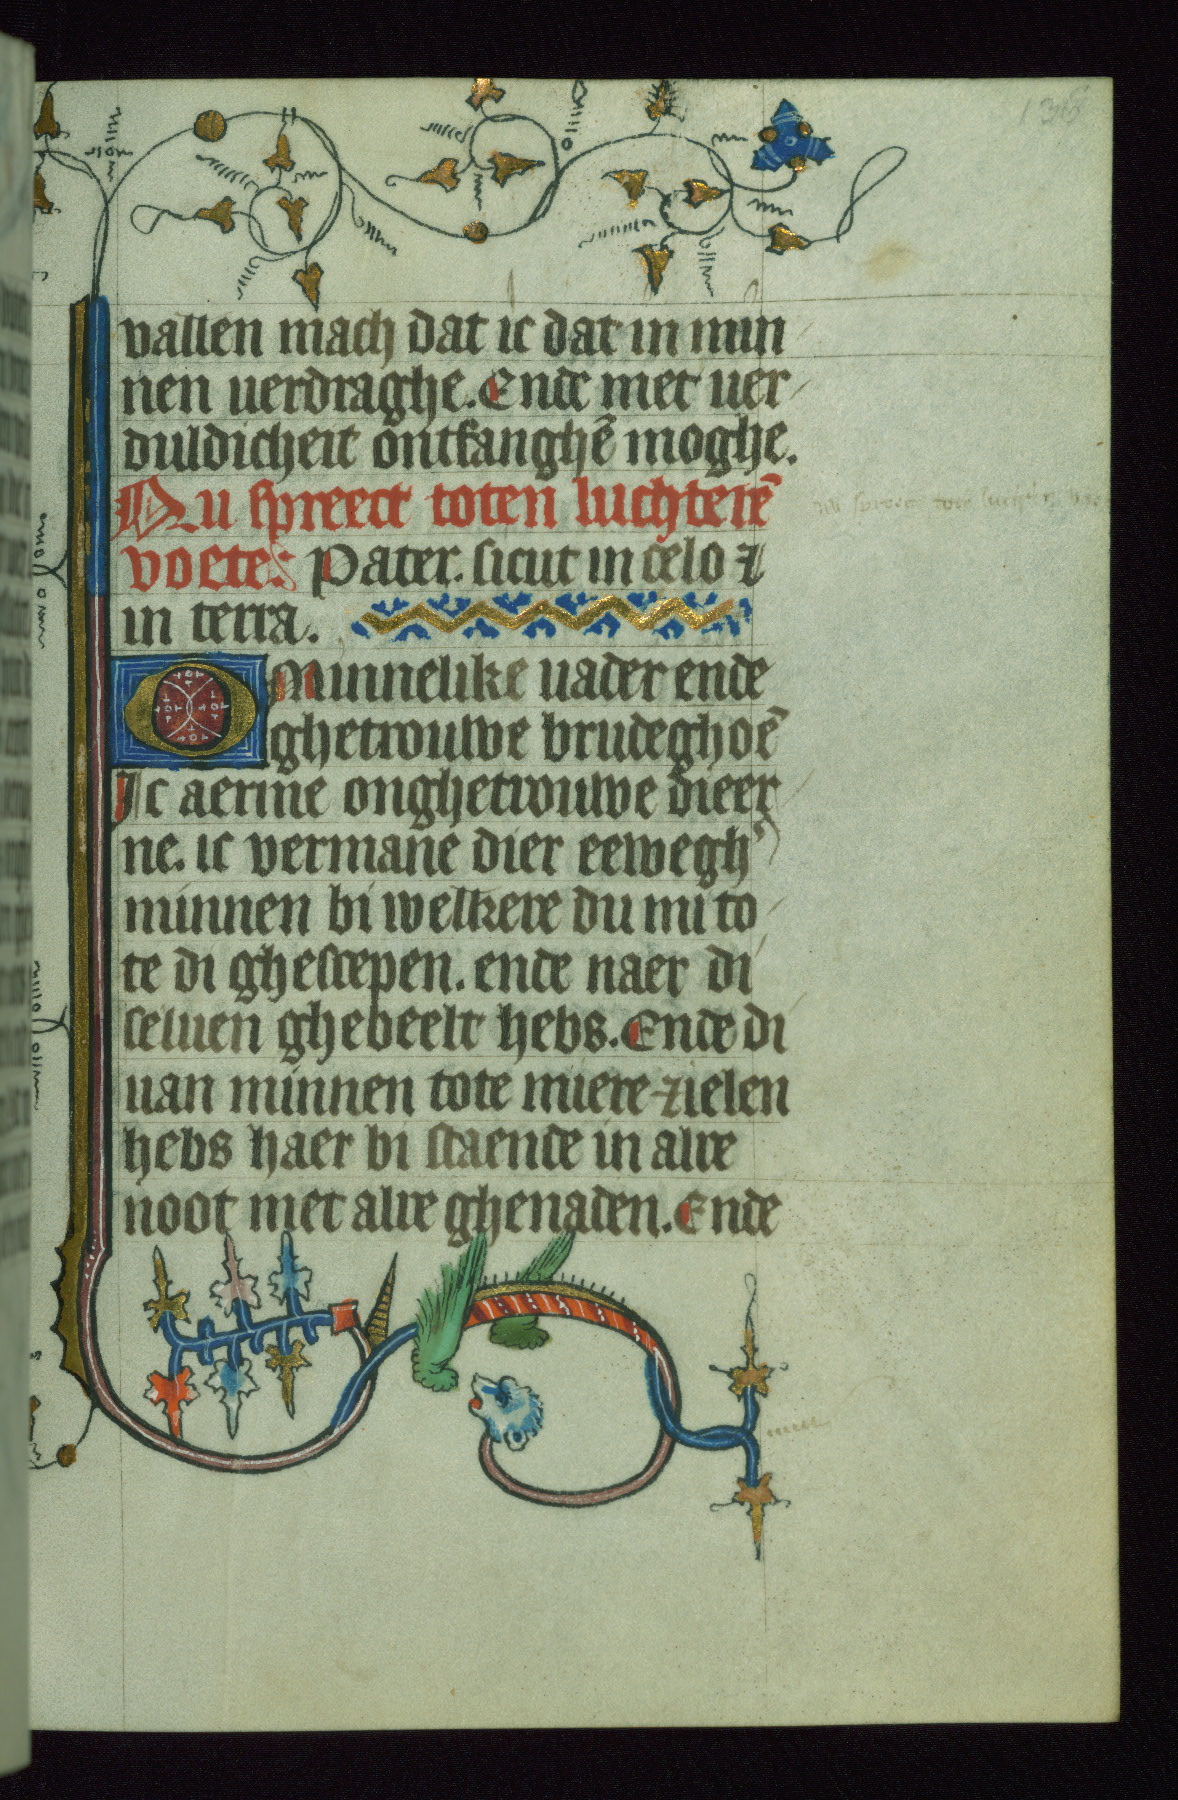 vallen mach dat ic dat in min
nen uerdraghe. Ende met uer
duldicheit ontfanghē moghe.
Nu spreect toten luchterē
voete: Pater. sicut in celo ⁊
in terra.
O Minnelike uader ende
ghetrouwe brudeghoē
Ic aerme onghetrouwe dieer
ne. ic vermane dier eewegh'
minnen bi welkere du mi to
te di ghescepen. ende naer di
seluen ghebeelt hebs. Ende di
uan minnen tote miere zielen
hebs haer bi staende in alre
noot met alre ghenaden. Ende